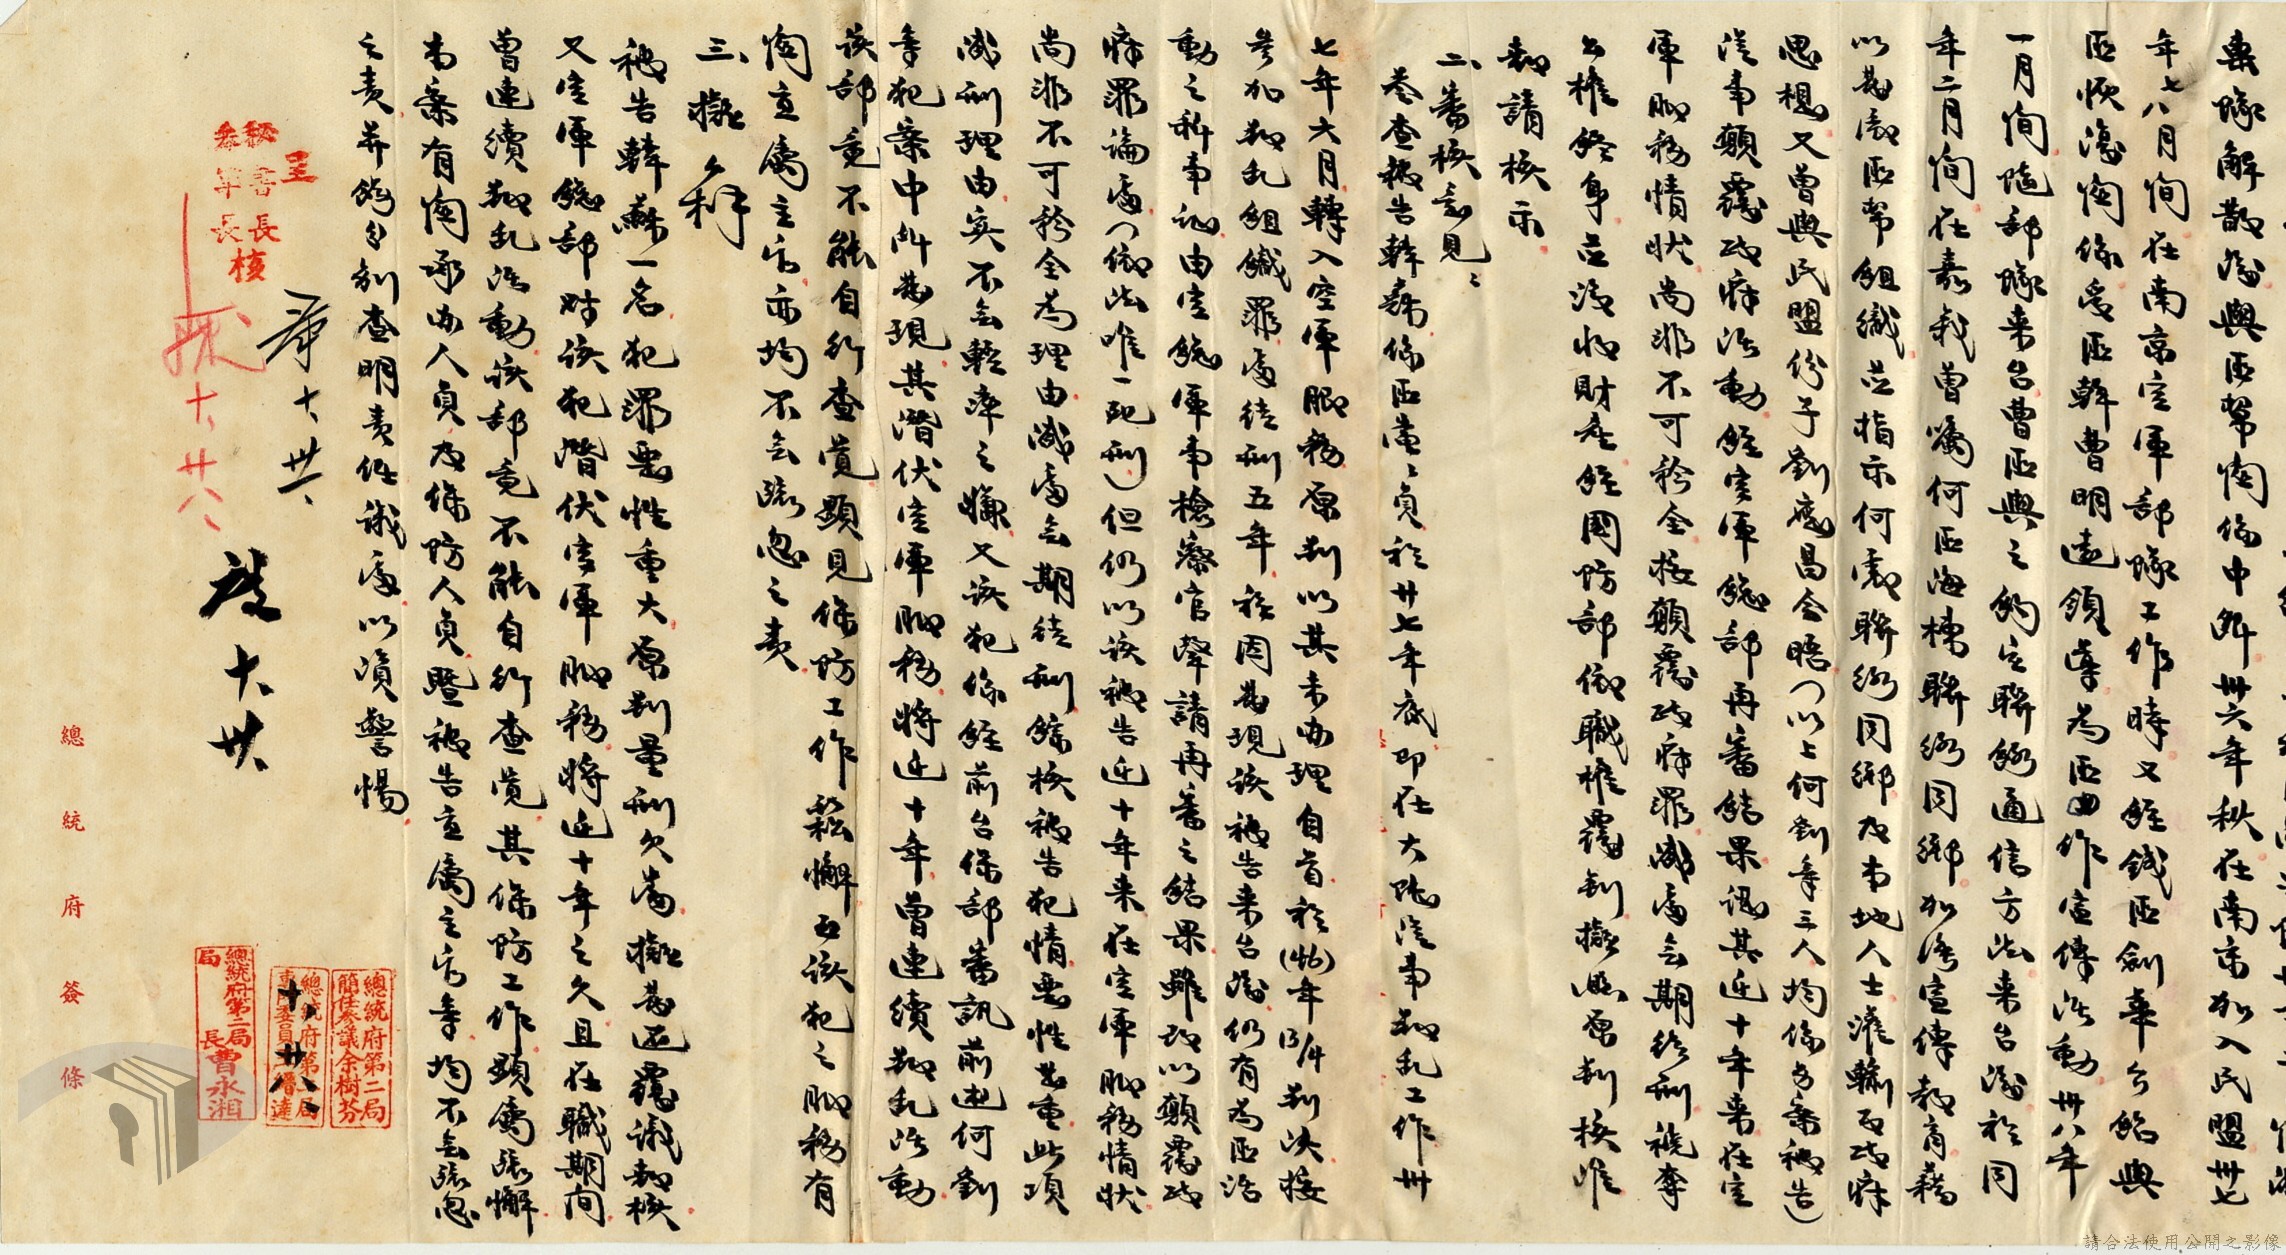 棄隊解散後與匪幫閩僑中斷卅六年秋在南京加入民盟卅七
年七八月間在南京空軍部隊工作時又經錢匪劍華介紹與
匪恢復關係受匪幹曹明遠領導為匪曲作宣傳活動卅八年
一月間隨部隊來台曹匪與之約定聯絡通信方法來台後於同
年二月間在嘉義曾囑何匪海棟聯絡同鄉加強宣傳教育藉
以為匪幫組織並指示何處聯絡同鄉及本地人士灌輸反政府
思想又曾與民盟份子劉慶昌會晤（以上何劉等三人均係另案被告）
從事顛覆政府活動經空軍總部再審結果認其近十年來在空
軍服務情狀尚非不可矜全按顛覆政府罪減處無期徒刑褫奪
公權終身並沒收財產經國防部依職權覆判擬照原判核准
報請核示
二、審核意見：
卷查被告韓蘇係匪黨黨員於廿七年底即在大陸從事叛亂工作卅
七年六月轉入空軍服務原判以其未辦理自首於(46)年13/4判決按
參加叛亂組織罪處徒刑五年嗣因發現該被告來台後仍有為匪活
動之新事證由空總軍事檢察官聲請再審之結果雖改以顛覆政
府罪論處（依法唯一死刑）但仍以該被告近十年來在空軍服務情狀
尚非不可矜全為理由減處無期徒刑經核被告犯情惡性甚重此項
減刑理由實不無輕率之嫌又該犯係經前台保部審訊前述何劉
等犯案中所發現其潛伏空軍服務將近十年曾連續叛亂活動
該部竟不能自行查覺顯見保防工作鬆懈而該犯之服務有
關直屬主官亦均不無疏忽之責
三、擬辦
被告韓蘇一名犯罪惡性重大原判量刑欠當擬發還覆議報核
又空軍總部對該犯潛伏空軍服務將近十年之久且在職期間
曾連續叛亂活動該部竟不能自行查覺其保防工作顯屬疏懈
本案有關承辦人員及保防人員暨被告直屬主官等均不無疏忽
之責并飭分別查明責任議處以資警惕
呈
秘書長
參軍長 核
十 卅
總統府簽條
總統府第二局簡任參議余樹芬
總統府第二局局長曹永湘
請合法使用公開之影像